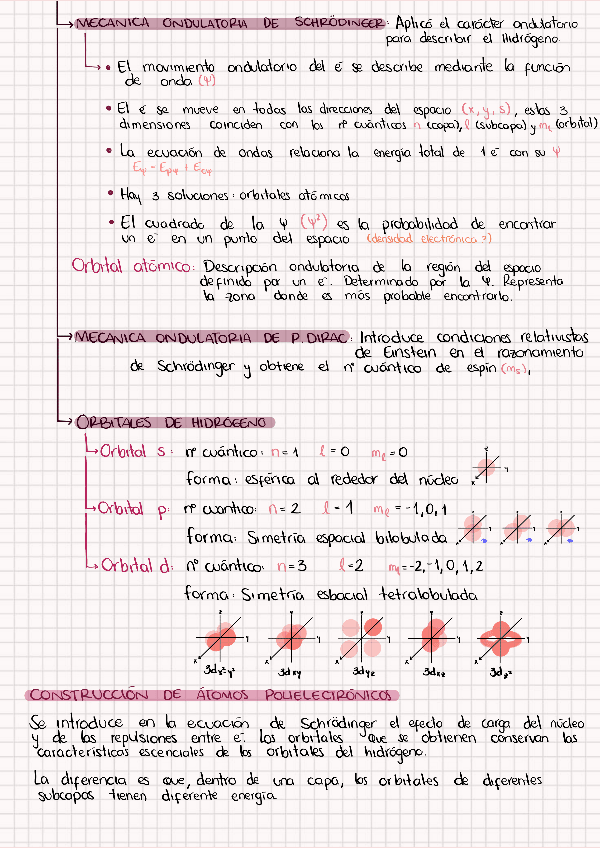 MECANICA ONDULATORIA DE SCHRÖDINGER: Aplicó el carácter ondulatorio
para describir el Hidrógeno.
• El movimiento ondulatorio del e⁻ se describe mediante la función
de onda (Ψ)
• El e⁻ se mueve en todas las direcciones del espacio (x, y, s), estas 3
dimensiones coinciden con los nº cuánticos n (capa), l (subcapa) y mₑ (orbital)
• La ecuación de ondas relaciona la energía total de 1 e⁻ con su Ψ
• Hay 3 soluciones: orbitales atómicos
• El cuadrado de la Ψ (Ψ²) es la probabilidad de encontrar
un e⁻ en un punto del espacio (densidad electrónica ?)
Orbital atómico: Descripción ondulatoria de la región del espacio
definido por un e⁻. Determinado por la Ψ. Representa
la zona donde es más probable encontrarlo.
MECANICA ONDULATORIA DE P.DIRAC: Introduce condiciones relativistas
de Einstein en el razonamiento
de Schrödinger y obtiene el nº cuántico de espín (mₛ),
ORBITALES DE HIDRÓGENO
Orbital s: nº cuántico: n = 1 l = 0 mₑ = 0
forma: esférica al rededor del núcleo
Orbital p: nº cuantico: n = 2 l = 1 mₑ = -1, 0, 1
forma: Simetría espacial bilobulada
Orbital d: nº cuántico: n = 3 l = 2 mₑ = -2, -1, 0, 1, 2
forma: Simetría esbacial tetralobulada
3dx²y² 3dxy 3dyz 3dxz 3dz²
CONSTRUCCIÓN DE ÁTOMOS POLIELECTRÓNICOS
Se introduce en la ecuación de Schrödinger el efecto de carga del núcleo
y de las repulsiones entre e⁻. Los orbitales que se obtienen conservan las
características escenciales de los orbitales del hidrógeno.
La diferencia es que, dentro de una capa, los orbitales de diferentes
subcapas tienen diferente energía